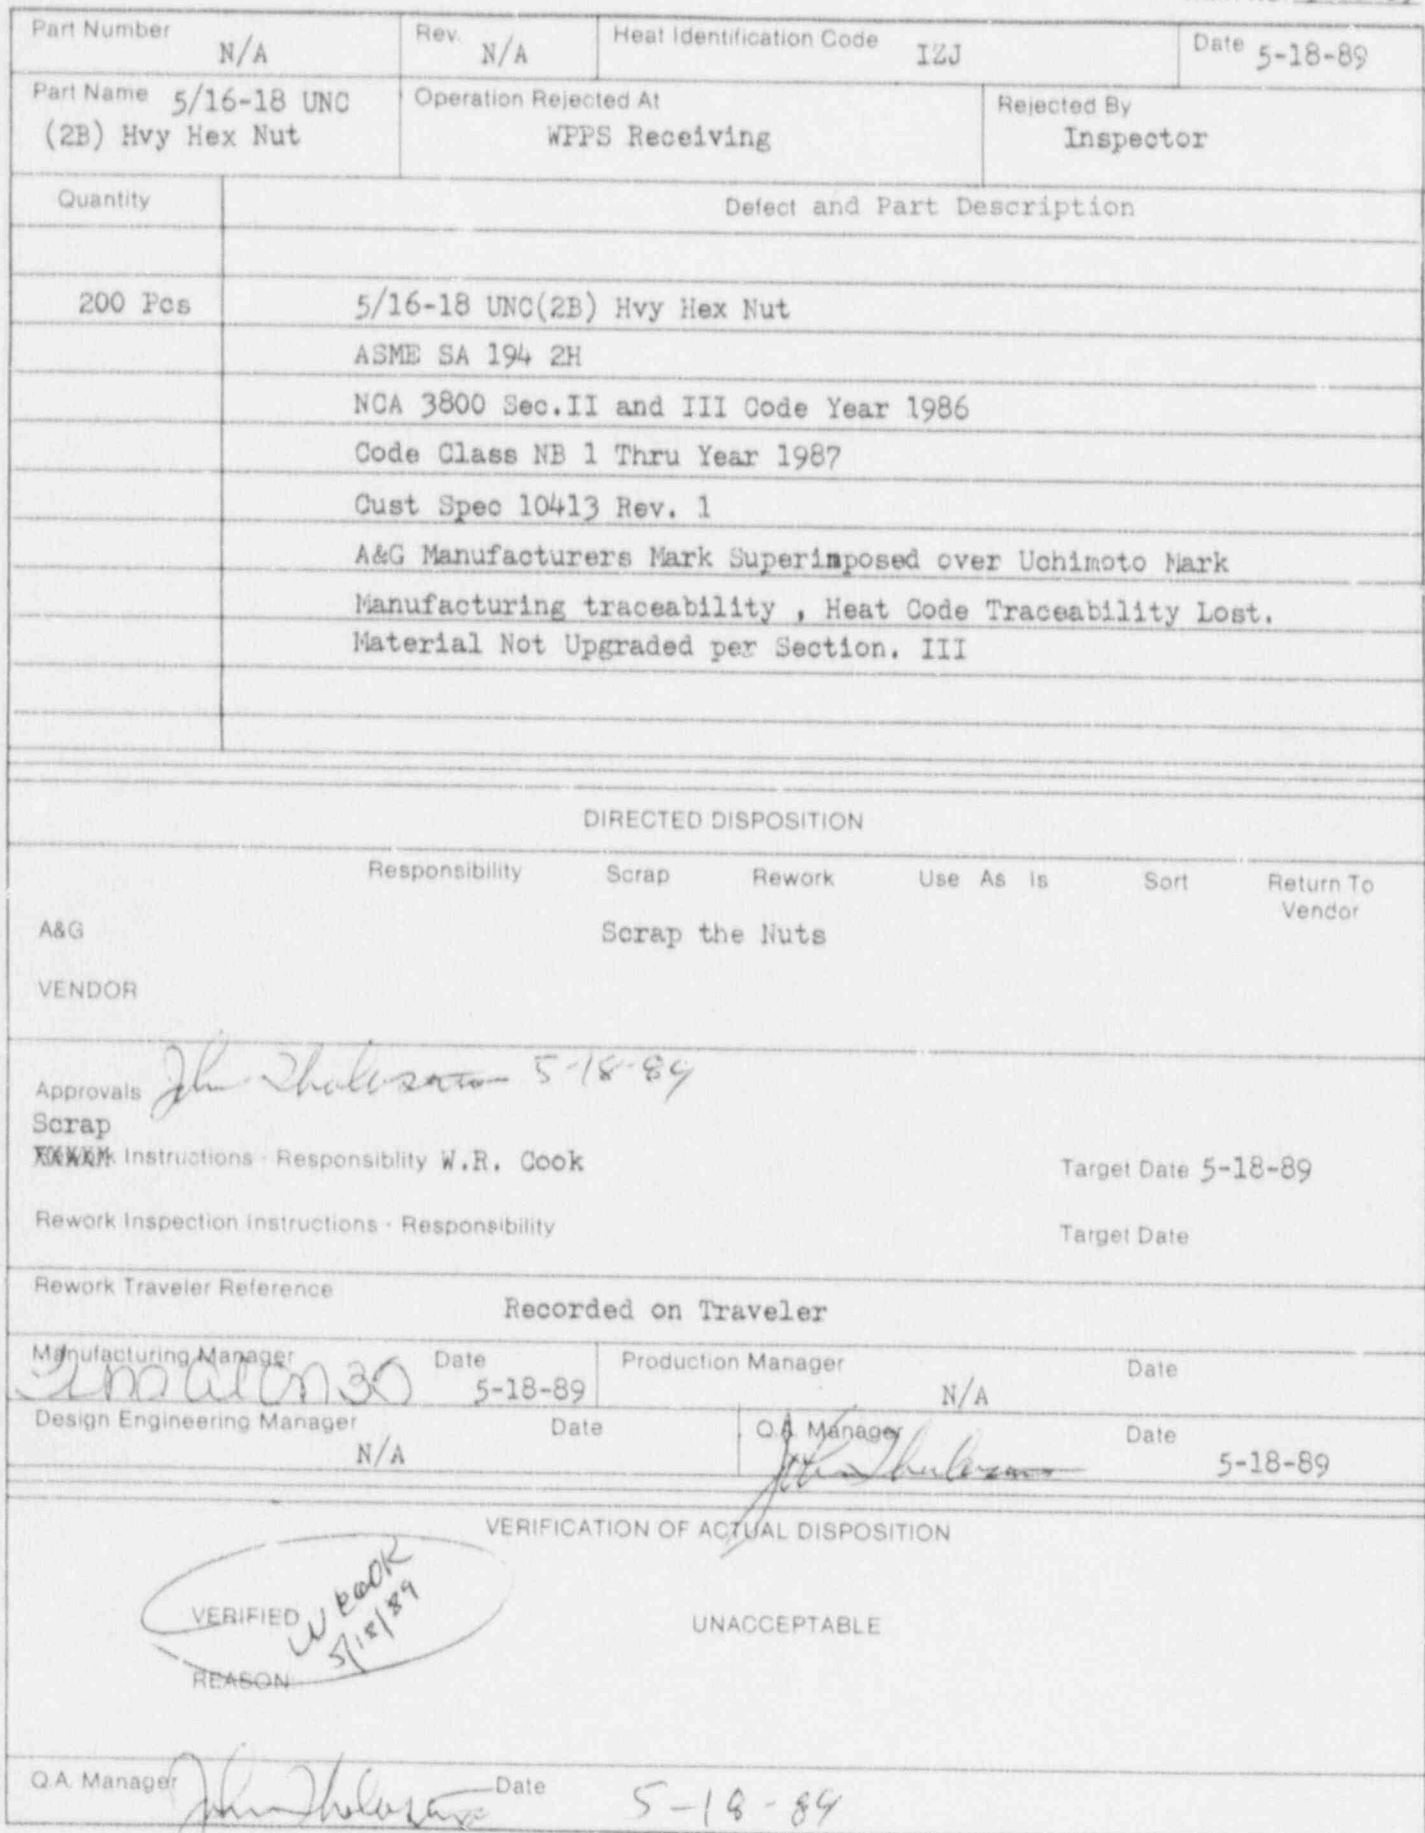 Part Number N/A Rev. N/A Heat Identification Code IZJ Date 5-18-89
Part Name 5/16-18 UNC
(2B) Hvy Hex Nut
Operation Rejected At
WPPS Receiving
Rejected By
Inspector
Quantity Defect and Part Description
200 Pcs 5/16-18 UNC(2B) Hvy Hex Nut
ASME SA 194 2H
NCA 3800 Sec.II and III Code Year 1986
Code Class NB 1 Thru Year 1987
Cust Spec 10413 Rev. 1
A&G Manufacturers Mark Superimposed over Uchimoto Mark
Manufacturing traceability , Heat Code Traceability Lost.
Material Not Upgraded per Section. III
DIRECTED DISPOSITION
Responsibility Scrap Rework Use As Is Sort Return To
Vendor
A&G Scrap the Nuts
VENDOR
Approvals John 5-18-89
Scrap
Instructions - Responsiblity W.R. Cook Target Date 5-18-89
Rework Inspection Instructions - Responsibility Target Date
Rework Traveler Reference
Recorded on Traveler
Manufacturing Manager Date 5-18-89 Production Manager N/A Date
Design Engineering Manager N/A Date Q.A. Manager John Date 5-18-89
VERIFICATION OF ACTUAL DISPOSITION
VERIFIED W R COOK
5/18/89
UNACCEPTABLE
REASON
Q.A. Manager John Date 5-18-89